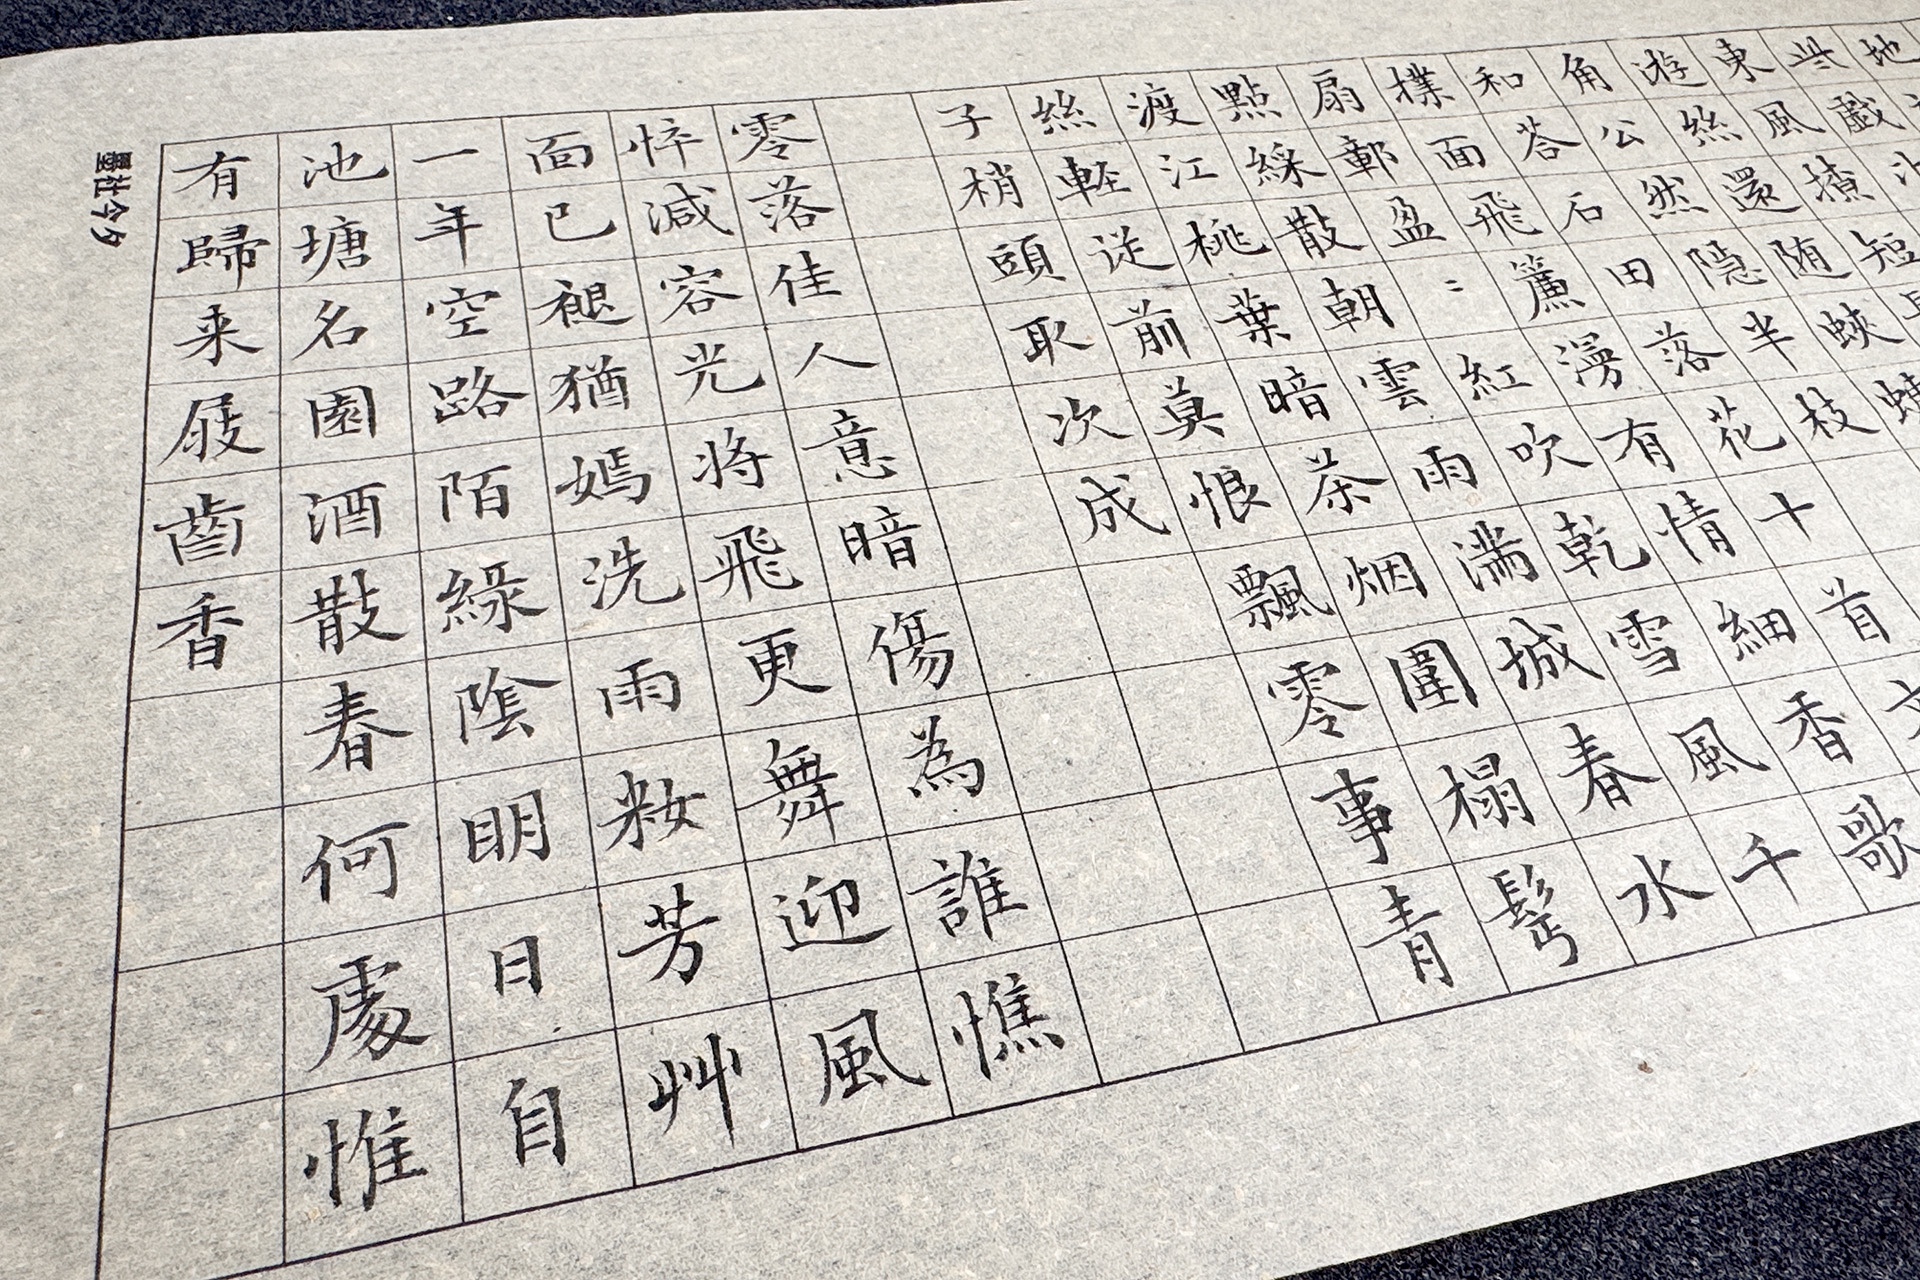 地
此戲
東風撩短
游絲還随蛺
角公然隱半枝
和荅石田落花十首
撲面飛簾漫有情細香歌
扇鄣盈〻紅吹乾雪風千
點綵散朝雲雨滿城春水
渡江桃葉暗茶烟圍榻鬂
絲輕從前莫恨飄零事青
子梢頭取次成
零落佳人意暗傷為誰憔
悴減容光將飛更舞迎風
面已褪猶嫣洗雨粧芳艸
一年空路陌綠陰明日自
池塘名園酒散春何處惟
有歸来屐齒香